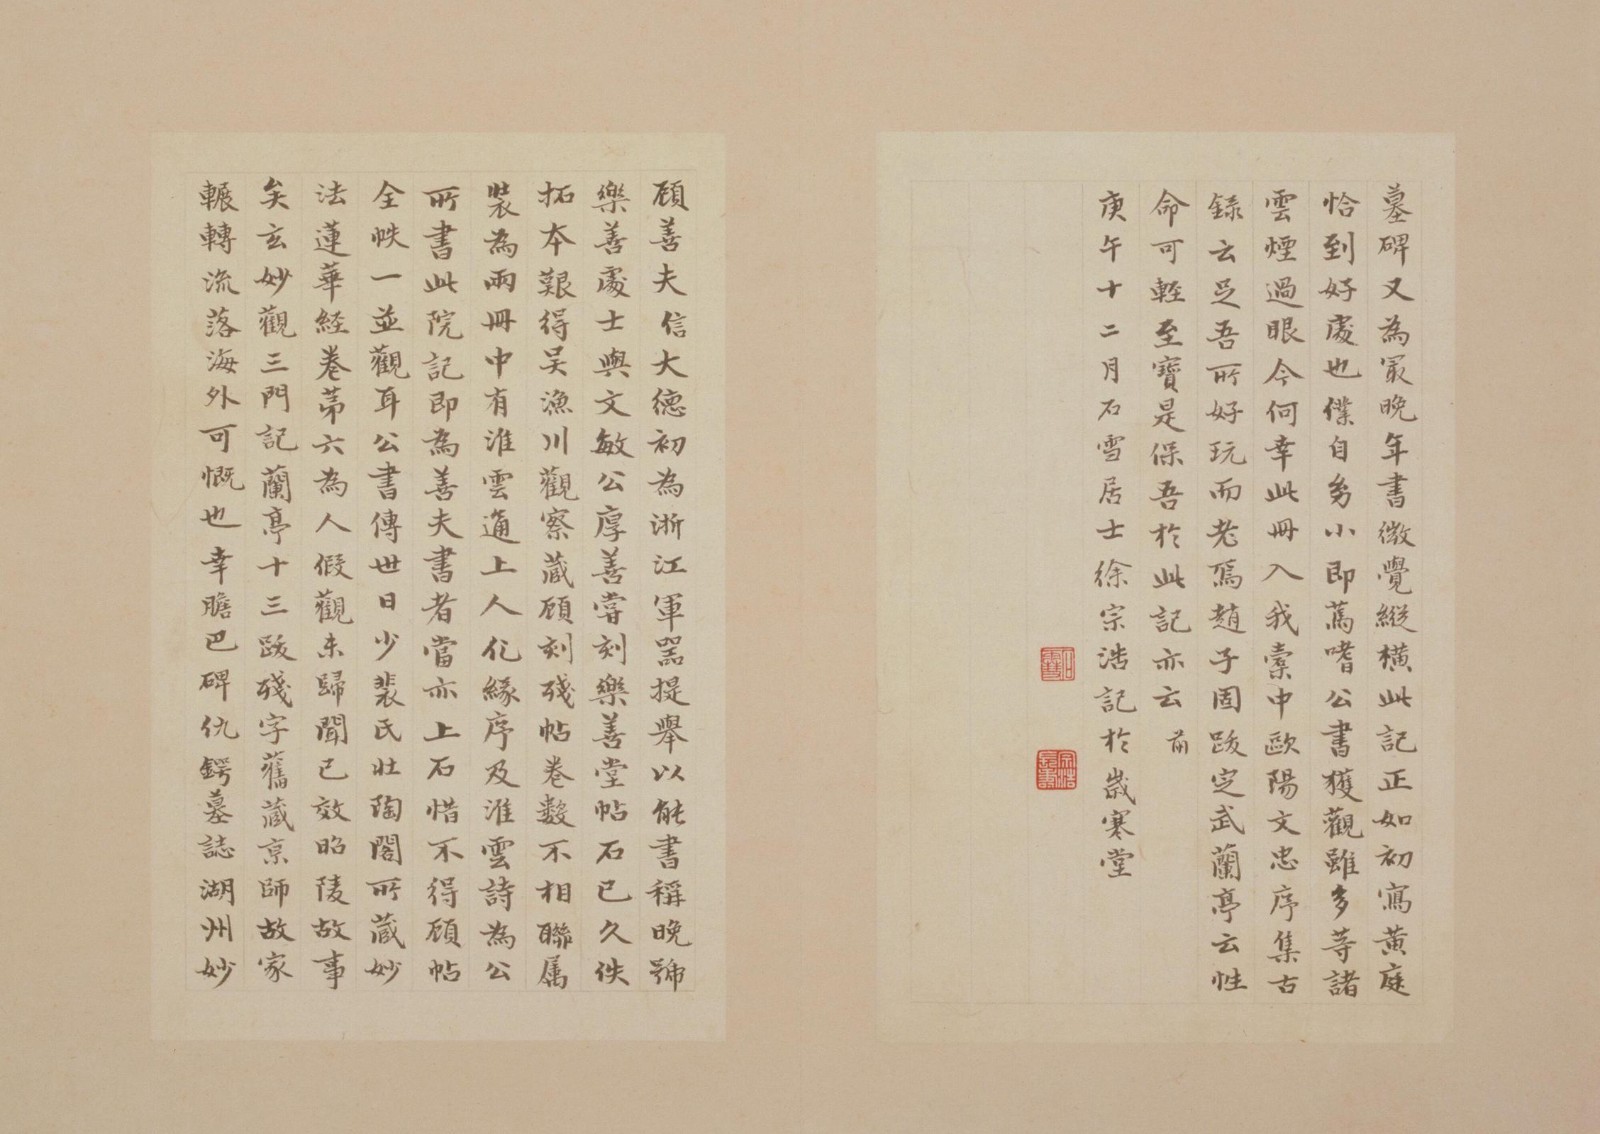 墓碑又為冣晚年書微覺縱橫此記正如初寫黄庭
恰到好處也僕自髫小即蔫嗜公書獲觀雖多等諸
雲煙過眼今何幸此冊入我橐中歐陽文忠序集古
録云足吾所好玩而老焉趙子固跋定武蘭亭云性
命可輕至寶是保吾於此記亦云 前
庚午十二月石雪居士徐宗浩記於歲寒堂
石雪
宗浩
顧善夫信大德初為浙江軍器提舉以能書稱晚號
樂善處士與文敏公厚善嘗刻樂善堂帖石已久佚
拓本艱得吴漁川觀察藏顧刻殘帖卷數不相聯属
裝為兩冊中有淮雲通上人化緣序及淮雲詩為公
所書此院記即為善夫書者當亦上石惜不得顧帖
全帙一並觀耳公書傳世日少裴氏壯陶閣所藏妙
法蓮華經卷苐六為人假觀未歸聞已效昭陵故事
矣玄妙觀三門記蘭亭十三跋殘字舊藏京師故家
輾轉流落海外可慨也幸膽巴碑仇鍔墓誌湖州妙